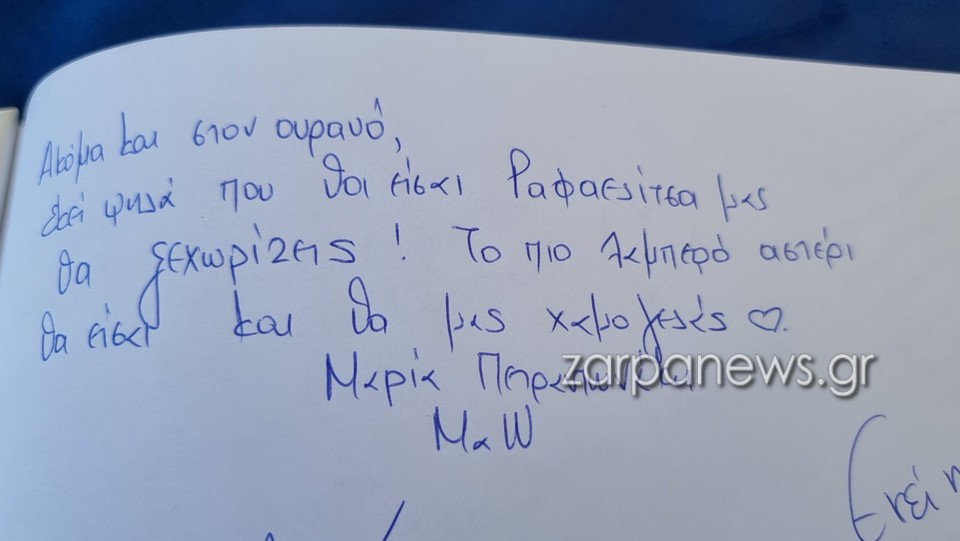 Ακόμα και στον ουρανό,
εκεί ψηλά που θα είσαι Ραφαελίτσα μας
θα ξεχωρίζεις ! Το πιο λαμπερό αστέρι
θα είσαι και θα μας χαμογελάς ♡.
zarpanews.gr
Μαρία
ΜαW
Εκεί